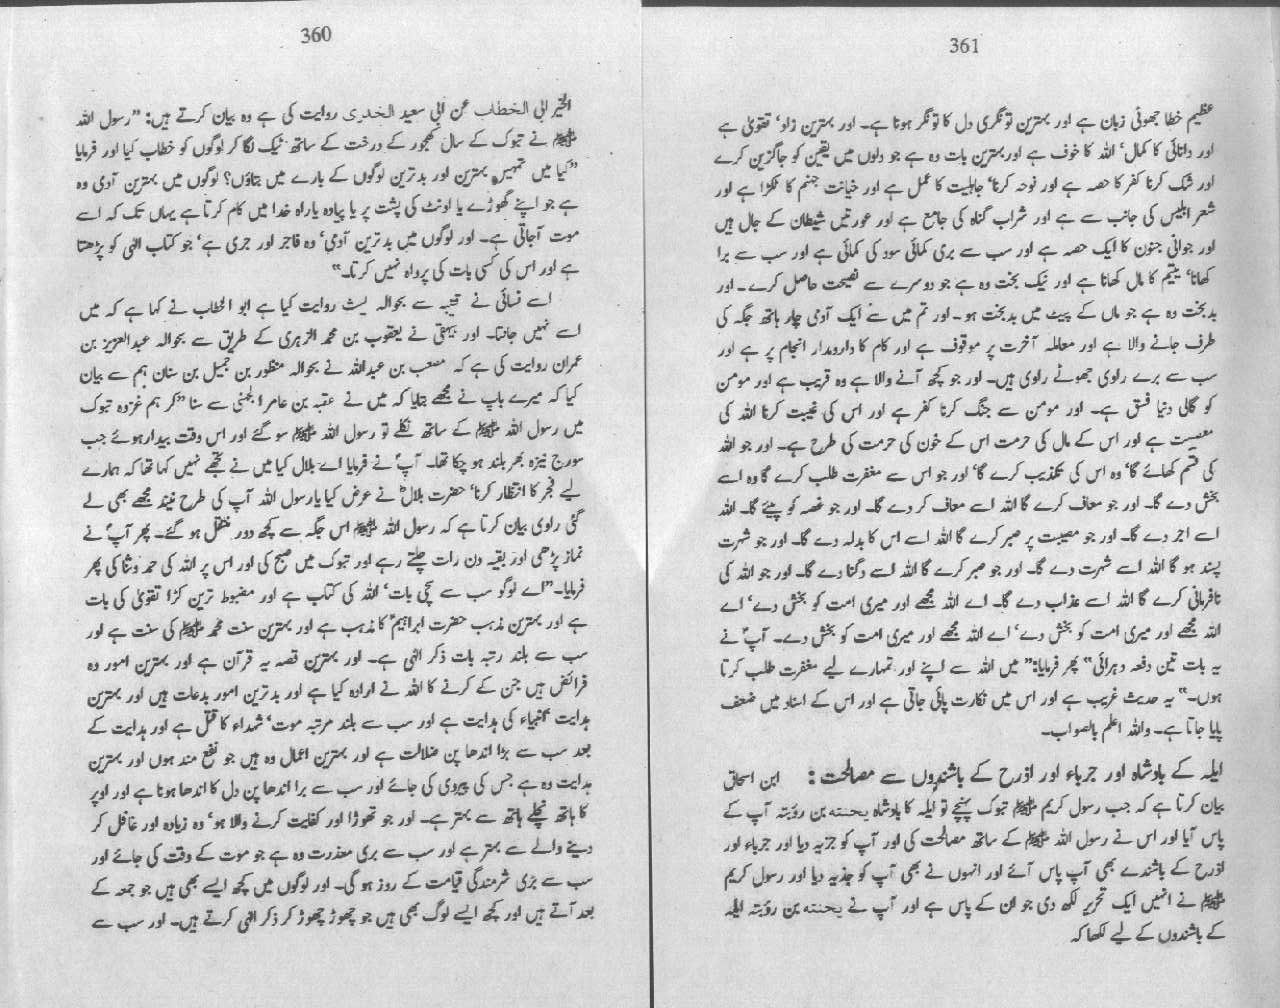 360
الخیر ابی الخطاب عن ابی سعید الخدری روایت کی ہے وہ بیان کرتے ہیں: ”رسول اللہ
ﷺ نے تبوک کے سال کھجور کے درخت کے ساتھ ٹیک لگا کر لوگوں کو خطاب کیا اور فرمایا
”کیا میں تمہیں بہترین اور بدترین لوگوں کے بارے میں بتاؤں؟ لوگوں میں بہترین آدمی وہ
ہے جو اپنے گھوڑے یا اونٹ کی پشت پر یا پیادہ یا راہ خدا میں کام کرتا ہے یہاں تک کہ اسے
موت آجاتی ہے۔ اور لوگوں میں بدترین آدمی‘ وہ فاجر اور جری ہے‘ جو کتاب الٰہی کو پڑھتا
ہے اور اس کی کسی بات کی پرواہ نہیں کرتا۔“
اسے نسائی نے قتیبہ سے بحوالہ لیث روایت کیا ہے ابو الخطاب نے کہا ہے کہ میں
اسے نہیں جانتا۔ اور بیہقی نے یعقوب بن محمد الزہری کے طریق سے بحوالہ عبدالعزیز بن
عمران روایت کی ہے کہ مصعب بن عبداللہ نے بحوالہ منظور بن جمیل بن سنان ہم سے بیان
کیا کہ میرے باپ نے مجھے بتایا کہ میں نے عقبہ بن عامر الجہنی سے سنا ”کر ہم غزوہ تبوک
میں رسول اللہ ﷺ کے ساتھ نکلے تو رسول اللہ ﷺ سو گئے اور اس وقت بیدار ہوئے جب
سورج نیزہ بھر بلند ہو چکا تھا۔ آپؐ نے فرمایا اے بلال کیا میں نے تجھے نہیں کہا تھا کہ ہمارے
لیے فجر کا انتظار کرنا‘ حضرت بلالؓ نے عرض کیا یا رسول اللہ آپ کی طرح نیند مجھے بھی لے
گئی راوی بیان کرتا ہے کہ رسول اللہ ﷺ اس جگہ سے کچھ دور منتقل ہو گئے۔ پھر آپؐ نے
نماز پڑھی اور بقیہ دن رات چلتے رہے اور تبوک میں صبح کی اور اس پر اللہ کی حمد و ثنا کی پھر
فرمایا۔”اے لوگو سب سے سچی بات‘ اللہ کی کتاب ہے اور مضبوط ترین کڑا تقویٰ کی بات
ہے اور بہترین مذہب حضرت ابراہیمؑ کا مذہب ہے اور بہترین سنت محمد ﷺ کی سنت ہے اور
سب سے بلند رتبہ بات ذکر الٰہی ہے۔ اور بہترین قصہ یہ قرآن ہے اور بہترین امور وہ
فرائض ہیں جن کے کرنے کا اللہ نے ارادہ کیا ہے اور بدترین امور بدعات ہیں اور بہترین
ہدایت انبیاء کی ہدایت ہے اور سب سے بلند مرتبہ موت‘ شہداء کا قتل ہے اور ہدایت کے
بعد سب سے بڑا اندھا پن ضلالت ہے اور بہترین اعمال وہ ہیں جو نفع مند ہوں اور بہترین
ہدایت وہ ہے جس کی پیروی کی جائے اور سب سے برا اندھا پن دل کا اندھا ہونا ہے اور اوپر
کا ہاتھ نچلے ہاتھ سے بہتر ہے۔ اور جو تھوڑا اور کفایت کرنے والا ہو‘ وہ زیادہ اور غافل کر
دینے والے سے بہتر ہے اور سب سے بری معذرت وہ ہے جو موت کے وقت کی جائے اور
سب سے بڑی شرمندگی قیامت کے روز ہو گی۔ اور لوگوں میں کچھ ایسے بھی ہیں جو جمعہ کے
بعد آتے ہیں اور کچھ ایسے لوگ بھی ہیں جو چھوڑ چھوڑ کر ذکر الٰہی کرتے ہیں۔ اور سب سے
361
عظیم خطا جھوٹی زبان ہے اور بہترین تونگری دل کا تونگر ہونا ہے۔ اور بہترین زاد‘ تقویٰ ہے
اور دانائی کا کمال‘ اللہ کا خوف ہے اور بہترین بات وہ ہے جو دلوں میں یقین کو جاگزین کرے
اور شک کرنا کفر کا حصہ ہے اور نوحہ کرنا‘ جاہلیت کا عمل ہے اور خیانت جہنم کا ٹکڑا ہے اور
شعر ابلیس کی جانب سے ہے اور شراب گناہ کی جامع ہے اور عورتیں شیطان کے جال ہیں
اور جوانی جنون کا ایک حصہ ہے اور سب سے بری کمائی سود کی کمائی ہے اور سب سے برا
کھانا‘ یتیم کا مال کھانا ہے اور نیک بخت وہ ہے جو دوسرے سے نصیحت حاصل کرے۔ اور
بدبخت وہ ہے جو ماں کے پیٹ میں بدبخت ہو۔ اور تم میں سے ایک آدمی چار ہاتھ جگہ کی
طرف جانے والا ہے اور معاملہ آخرت پر موقوف ہے اور کام کا دارومدار انجام پر ہے اور
سب سے برے راوی جھوٹے راوی ہیں۔ اور جو کچھ آنے والا ہے وہ قریب ہے اور مومن
کو گالی دینا فسق ہے۔ اور مومن سے جنگ کرنا کفر ہے اور اس کی غیبت کرنا اللہ کی
معصیت ہے اور اس کے مال کی حرمت اس کے خون کی حرمت کی طرح ہے۔ اور جو اللہ
کی قسم کھائے گا‘ وہ اس کی تکذیب کرے گا‘ اور جو اس سے مغفرت طلب کرے گا وہ اسے
بخش دے گا۔ اور جو معاف کرے گا اللہ اسے معاف کر دے گا۔ اور جو غصہ کو پیئے گا۔ اللہ
اسے اجر دے گا۔ اور جو مصیبت پر صبر کرے گا اللہ اسے اس کا بدلہ دے گا۔ اور جو شہرت
پسند ہو گا اللہ اسے شہرت دے گا۔ اور جو صبر کرے گا اللہ اسے دگنا دے گا۔ اور جو اللہ کی
نافرمانی کرے گا اللہ اسے عذاب دے گا۔ اے اللہ مجھے اور میری امت کو بخش دے‘ اے
اللہ مجھے اور میری امت کو بخش دے‘ اے اللہ مجھے اور میری امت کو بخش دے۔ آپؐ نے
یہ بات تین دفعہ دہرائی“ پھر فرمایا:” میں اللہ سے اپنے اور تمہارے لیے مغفرت طلب کرتا
ہوں۔“ یہ حدیث غریب ہے اور اس میں نکارت پائی جاتی ہے اور اس کے اسناد میں ضعف
پایا جاتا ہے۔ واللہ اعلم بالصواب۔
ایلہ کے بادشاہ اور جرباء اور اذرح کے باشندوں سے مصالحت : ابن اسحاق
بیان کرتا ہے کہ جب رسول کریم ﷺ تبوک پہنچے تو ایلہ کا بادشاہ یحنتہ بن رؤبتہ آپ کے
پاس آیا اور اس نے رسول اللہ ﷺ کے ساتھ مصالحت کی اور آپ کو جزیہ دیا اور جرباء اور
اذرح کے باشندے بھی آپ پاس آئے اور انہوں نے بھی آپ کو جذیہ دیا اور رسول کریم
ﷺ نے انہیں ایک تحریر لکھ دی جو ان کے پاس ہے اور آپ نے یحنتہ بن رؤبتہ ایلہ
کے باشندوں کے لیے لکھا کہ